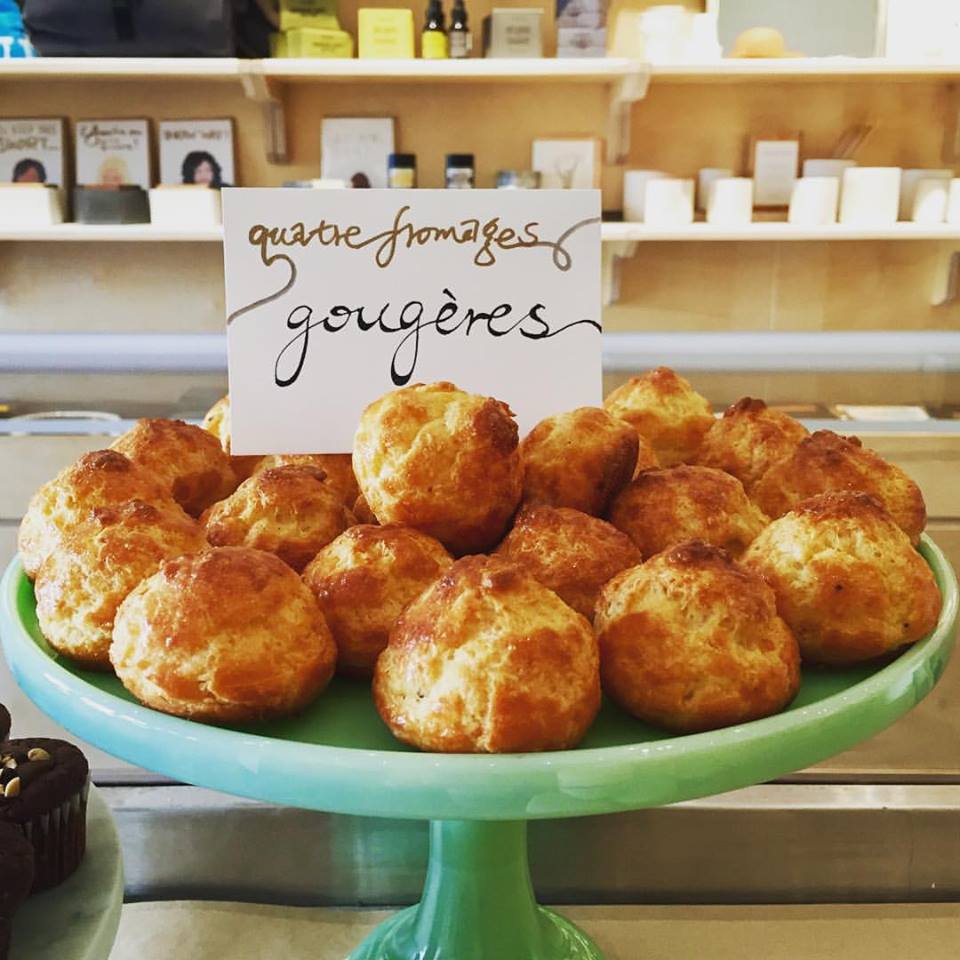 quatre fromages
gougères